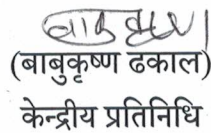 (बाबुकृष्ण ढकाल)
केन्द्रीय प्रतिनिधि